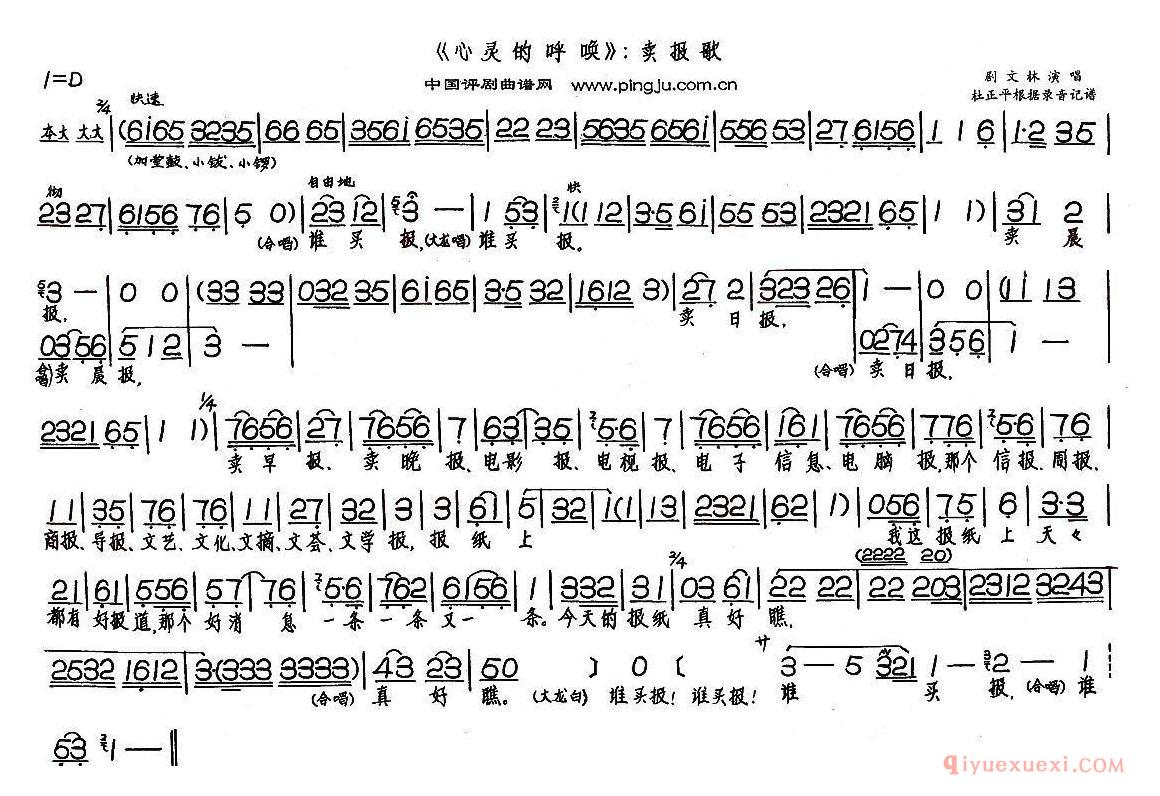 《心灵的呼唤》：卖报歌
1=D
中国评剧曲谱网 www.pingju.com.cn
剧文林演唱
杜正平根据录音记谱
2/4 快速
本大 大大 (6i65 3235 | 66 65 | 356i 6535 | 22 23 | 5635 656i | 556 53 | 27 6156 | 1 1 6 | 1·2 35 |
(加堂鼓、小钹、小锣)
自由地 快
23 27 | 6156 76 | 5 0) | 23 12 | 3 — | 1 53 | 1(1 12 | 3·5 6i | 55 53 | 2321 65 | 1 1) | 31 2
(合唱)谁买报,(大龙唱)谁买报。 卖晨
3 — | 0 0 | (33 33 | 032 35 | 6i65 | 3·5 32 | 1612 3) | 27 2 | 323 26 | 1 — | 0 0 | (1i 13
报, 卖日报,
0356 | 512 | 3 — 0274 | 356 | 1 —
(合唱)卖晨报, (合唱) 卖日报,
1/4
2321 65 | 1 1) | 7656 | 27 | 7656 | 7 | 63 | 35 | 5·6 | 7 | 7656 | 161 | 7656 | 776 | 5·6 | 76
卖早报、卖晚报、电影报、电视报、电子信息、电脑报,那个信报、周报、
11 | 35 | 76 | 76 | 11 | 27 | 32 | 3 | 3 | 61 | 5 | 32 | 1(1 | 13 | 2321 | 62 | 1) | 056 | 75 | 6 | 3·3
商报、导报、文艺、文化、文摘、文荟、文学报,报纸上 我这报纸上天々
2/4 (2222 20)
21 | 61 | 556 | 57 | 7 6 | 5·6 | 762 | 6156 | 1 | 332 | 32 | 1 | 03 61 | 22 22 | 22 203 | 2312 3243
都有好报道,那个好消息一条一条又一条。今天的报纸真好瞧,
廿
2532 1612 | 3·(333 3333) | 43 23 | 50 〕 0 〔 3 — 5 321 1 — 2 — 1
(合唱) 真好瞧。 (大龙白) 谁买报！谁买报！谁买报,(合唱)谁
53 1 — ‖
qiyuexuexi.com